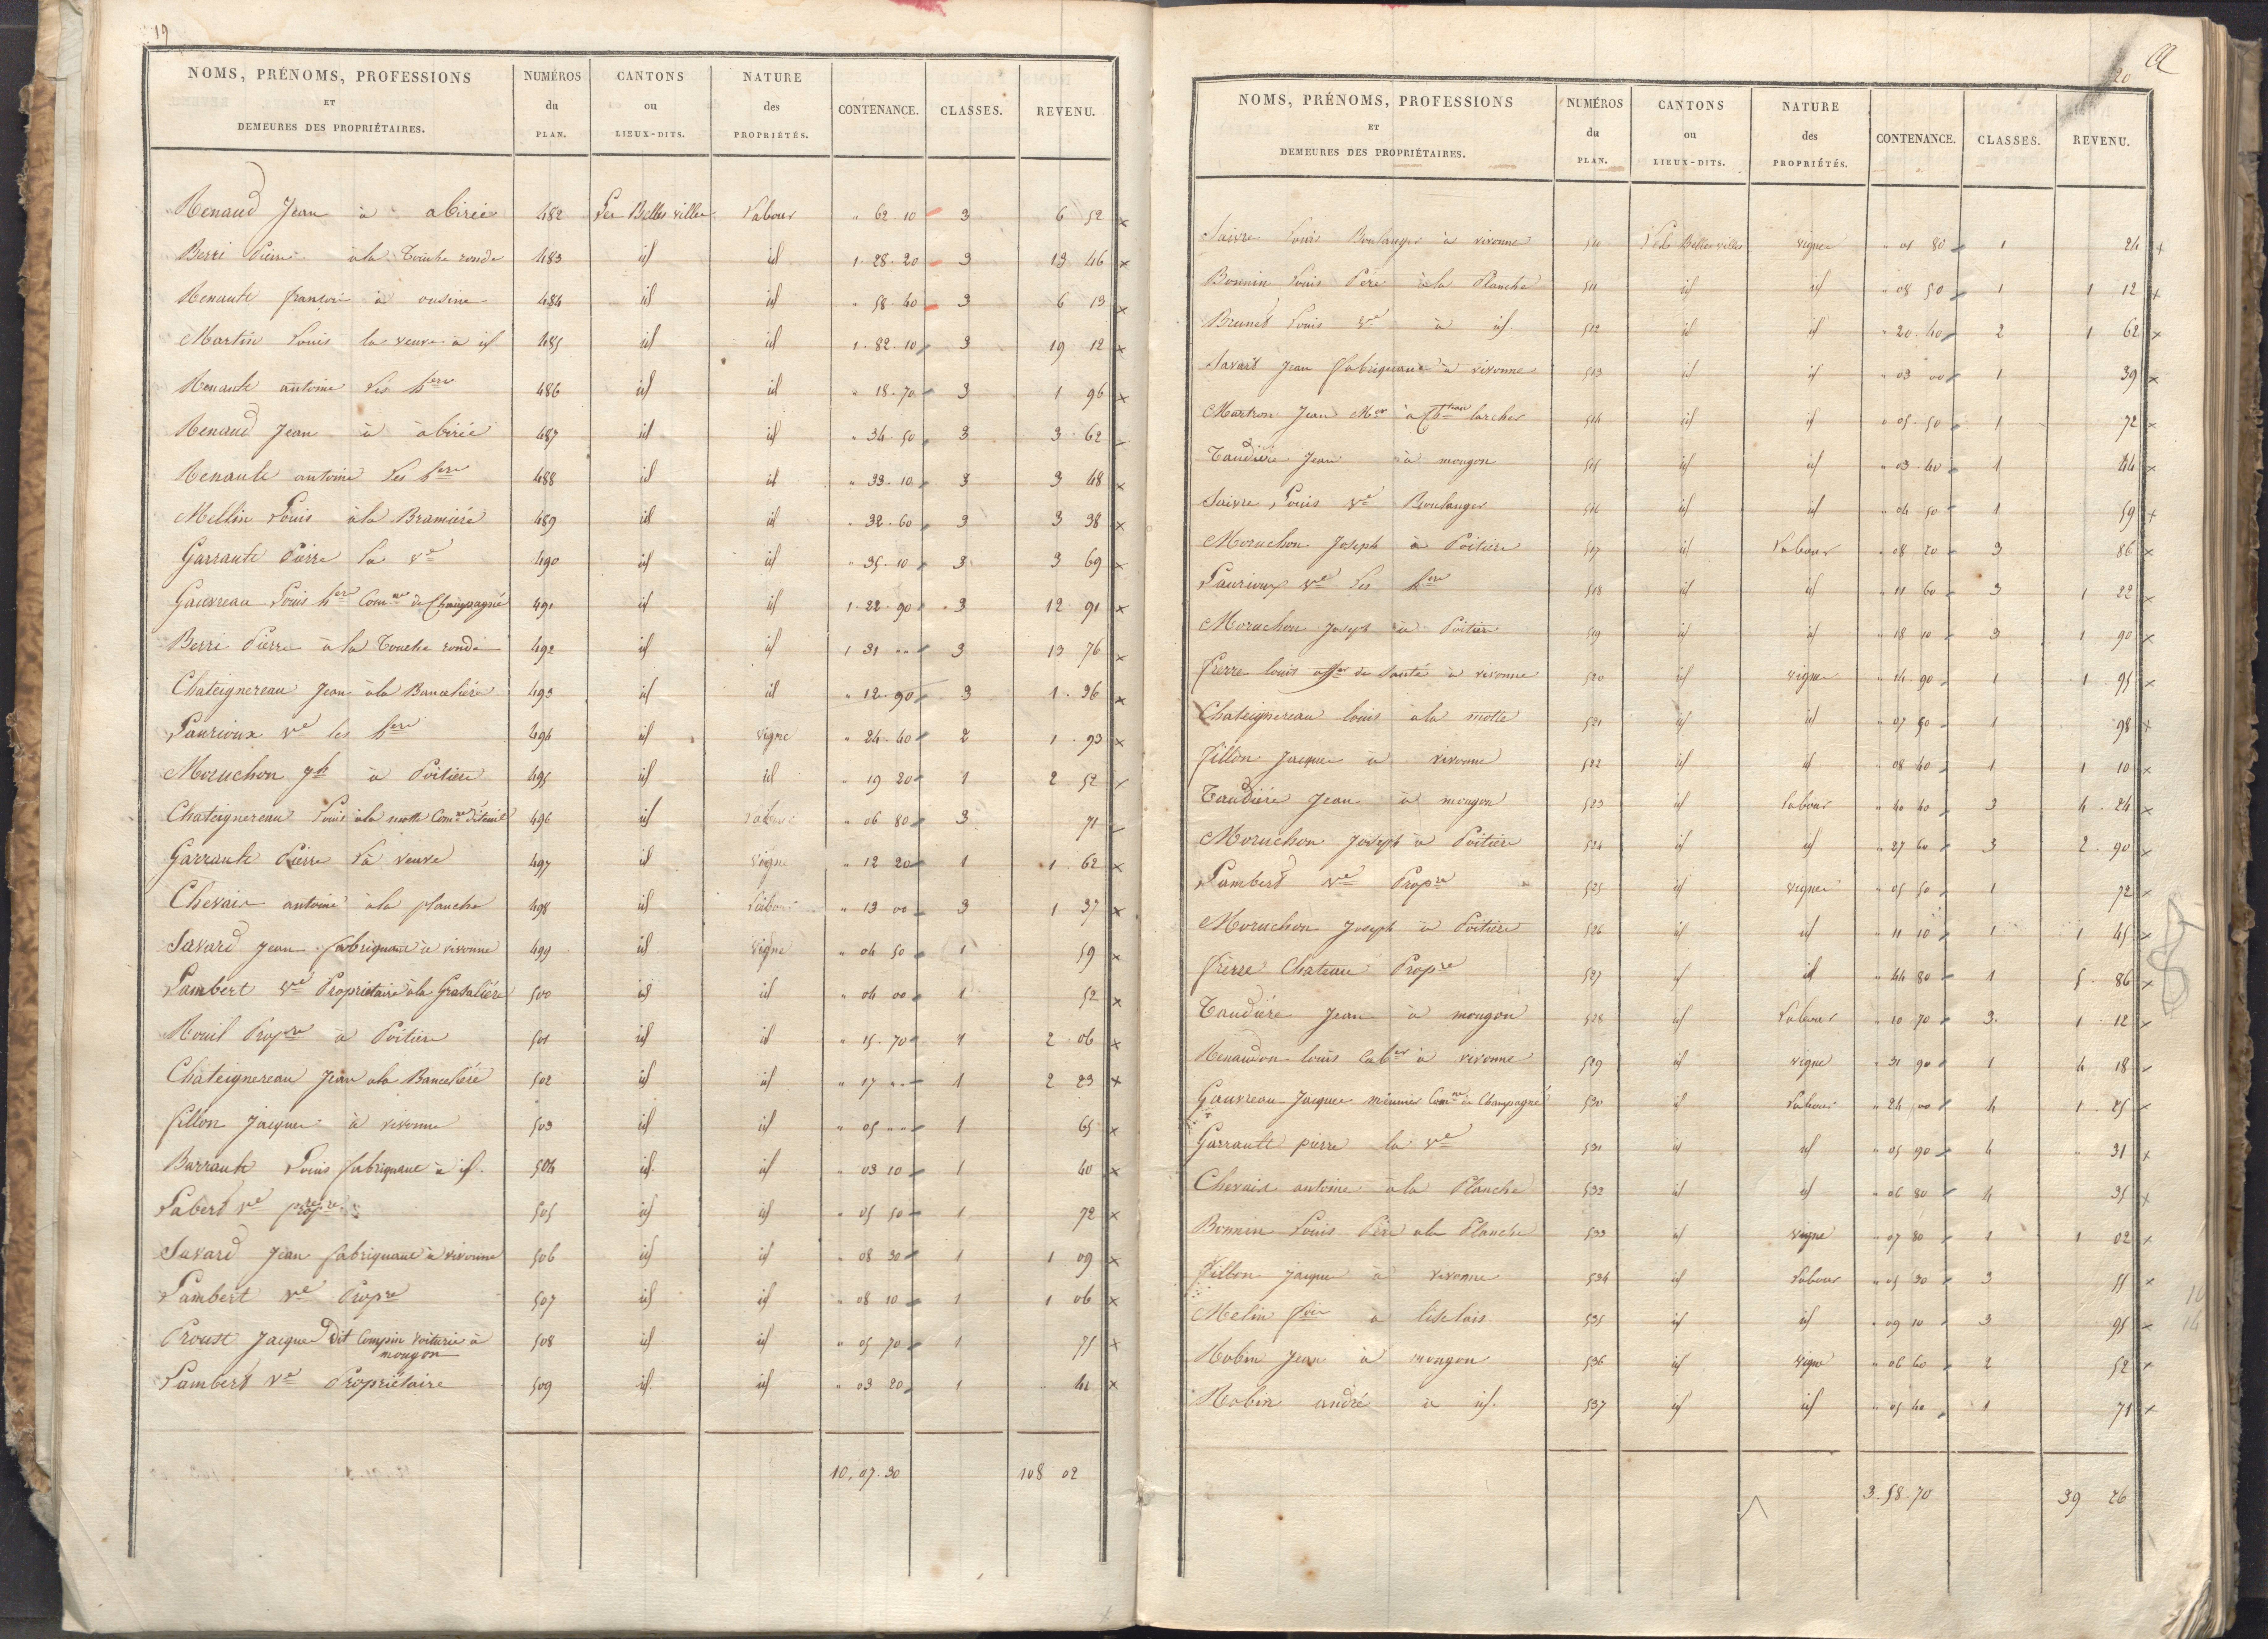 19
NOMS, PRÉNOMS, PROFESSIONS ET DEMEURES DES PROPRIÉTAIRES. NUMÉROS du PLAN. CANTONS ou LIEUX-DITS. NATURE des PROPRIÉTÉS. CONTENANCE. CLASSES. REVENU.
Renaud Jean à abirée 482 Les Belles villes Labour " 62 10 3 6 52 x
Berri Pierre à la Touche ronde 483 id id 1 28 20 3 13 46 x
Renault françois à ousine 484 id id " 58 40 3 6 13 x
Martin Louis la veuve à id 485 id id 1 82 10 3 19 12 x
Renault antoine les hers 486 id id " 18 70 3 1 96 x
Renaud Jean à abirée 487 id id " 34 50 3 3 62
Renault antoine les hers 488 id id " 33 10 3 3 48 x
Mellin Louis à la Bramière 489 id id " 32 60 3 3 38 x
Garrault Pierre la ve 490 id id " 35 10 3 3 69 x
Gauvreau Louis her Comne de Champagné 491 id id 1 22 90 3 12 91 x
Berri Pierre à la Touche ronde 492 id id 1 31 " 3 13 76 x
Chateignereau Jean à la Bancelière 493 id id " 12 90 3 1 36 x
Laurioux ve les hers 494 id vigne " 24 40 2 1 93 x
Moruchon jh à Poitiers 495 id id " 19 20 1 2 52 x
Chateignereau Louis à la motte Comne 496 id Labour " 06 80 3 71
Garrault Pierre la veuve 497 id vigne " 12 20 1 1 62 x
Chevais antoine à la planche 498 id Labour " 13 00 3 1 37 x
Savard Jean fabriquant à vivonne 499 id vigne " 04 50 1 59 x
Lambert ve Propriétaire à la 500 id id " 04 00 1 52 x
Propre à Poitiers 501 id id " 15 70 1 2 06 x
Chateignereau Jean à la Bancelière 502 id id " 17 " 1 2 23 x
fillon Jacques à vivonne 503 id id " 05 " 1 65 x
Barrault Louis fabriquant à id. 504 id id " 03 10 1 40 x
Labert ve propre 505 id id " 05 50 1 72 x
Savard Jean fabriquant à vivonne 506 id id " 08 30 1 1 09 x
Lambert ve Propre 507 id id " 08 10 1 1 06 x
Proust Jacques dit Compin voiturié à mougon 508 id id " 05 70 1 75 x
Lambert ve Propriétaire 509 id id " 03 20 1 " 41 x
10,07.30 108 02
20
NOMS, PRÉNOMS, PROFESSIONS ET DEMEURES DES PROPRIÉTAIRES. NUMÉROS du PLAN. CANTONS ou LIEUX-DITS. NATURE des PROPRIÉTÉS. CONTENANCE. CLASSES. REVENU.
Saivre Louis Boulanger à vivonne 510 Les Belles villes vigne " 01 80 1 24 x
Bonnin Louis Père à la Planche 511 id id " 08 50 1 1 12 x
Brunet Louis ve à id. 512 id id " 20 40 2 1 62 x
Savard Jean fabriquant à vivonne 513 id id " 03 00 1 39 x
Martron Jean Mer à Chteau larcher 514 id id " 05 50 1 72 x
Taudière Jean à mougon 515 id id " 03 40 1 44 x
Saivre Louis ve Boulanger 516 id id " 04 50 1 59 x
Moruchon Joseph à Poitiers 517 id Labour " 08 20 3 86 x
Laurioux ve les hers 518 id id " 11 60 3 1 22 x
Moruchon Joseph à Poitiers 519 id id " 18 10 3 1 90 x
frerre louis offer de santé à vivonne 520 id vigne " 14 90 1 1 95 x
Chateignereau louis à la motte 521 id id " 07 50 1 98 x
fillon Jacques à vivonne 522 id id " 08 40 1 1 10 x
Taudière Jean à mougon 523 id Labour " 40 40 3 4 24 x
Moruchon Joseph à Poitiers 524 id id " 27 60 3 2 90 x
Lambert ve Propre 525 id vigne " 05 50 1 72 x
Moruchon Joseph à Poitiers 526 id id " 11 10 1 1 45 x
frerre Chateau Propre 527 id id " 44 80 1 5 86 x
Taudière Jean à mougon 528 id Labour " 10 70 3 1 12 x
Renaudon louis Caber à vivonne 529 id vigne " 31 90 1 4 18
Gauvreau Jacques mineur Comne de Champagné 530 id Labour " 24 00 4 1 25 x
Garrault pierre la ve 531 id id " 05 90 4 " 31 x
Chevais antoine à la Planche 532 id id " 06 80 4 35 x
Bonnin Louis Père à la Planche 533 id vigne " 07 80 1 1 02 x
fillon Jacques à vivonne 534 id Labour " 05 30 3 55 x
Melin fois à 535 id id " 09 10 3 95 x
Robin Jean à mougon 536 id vigne " 06 60 2 52 x
Robin andré à id. 537 id id " 05 40 1 71 x
3.58.70 39 26